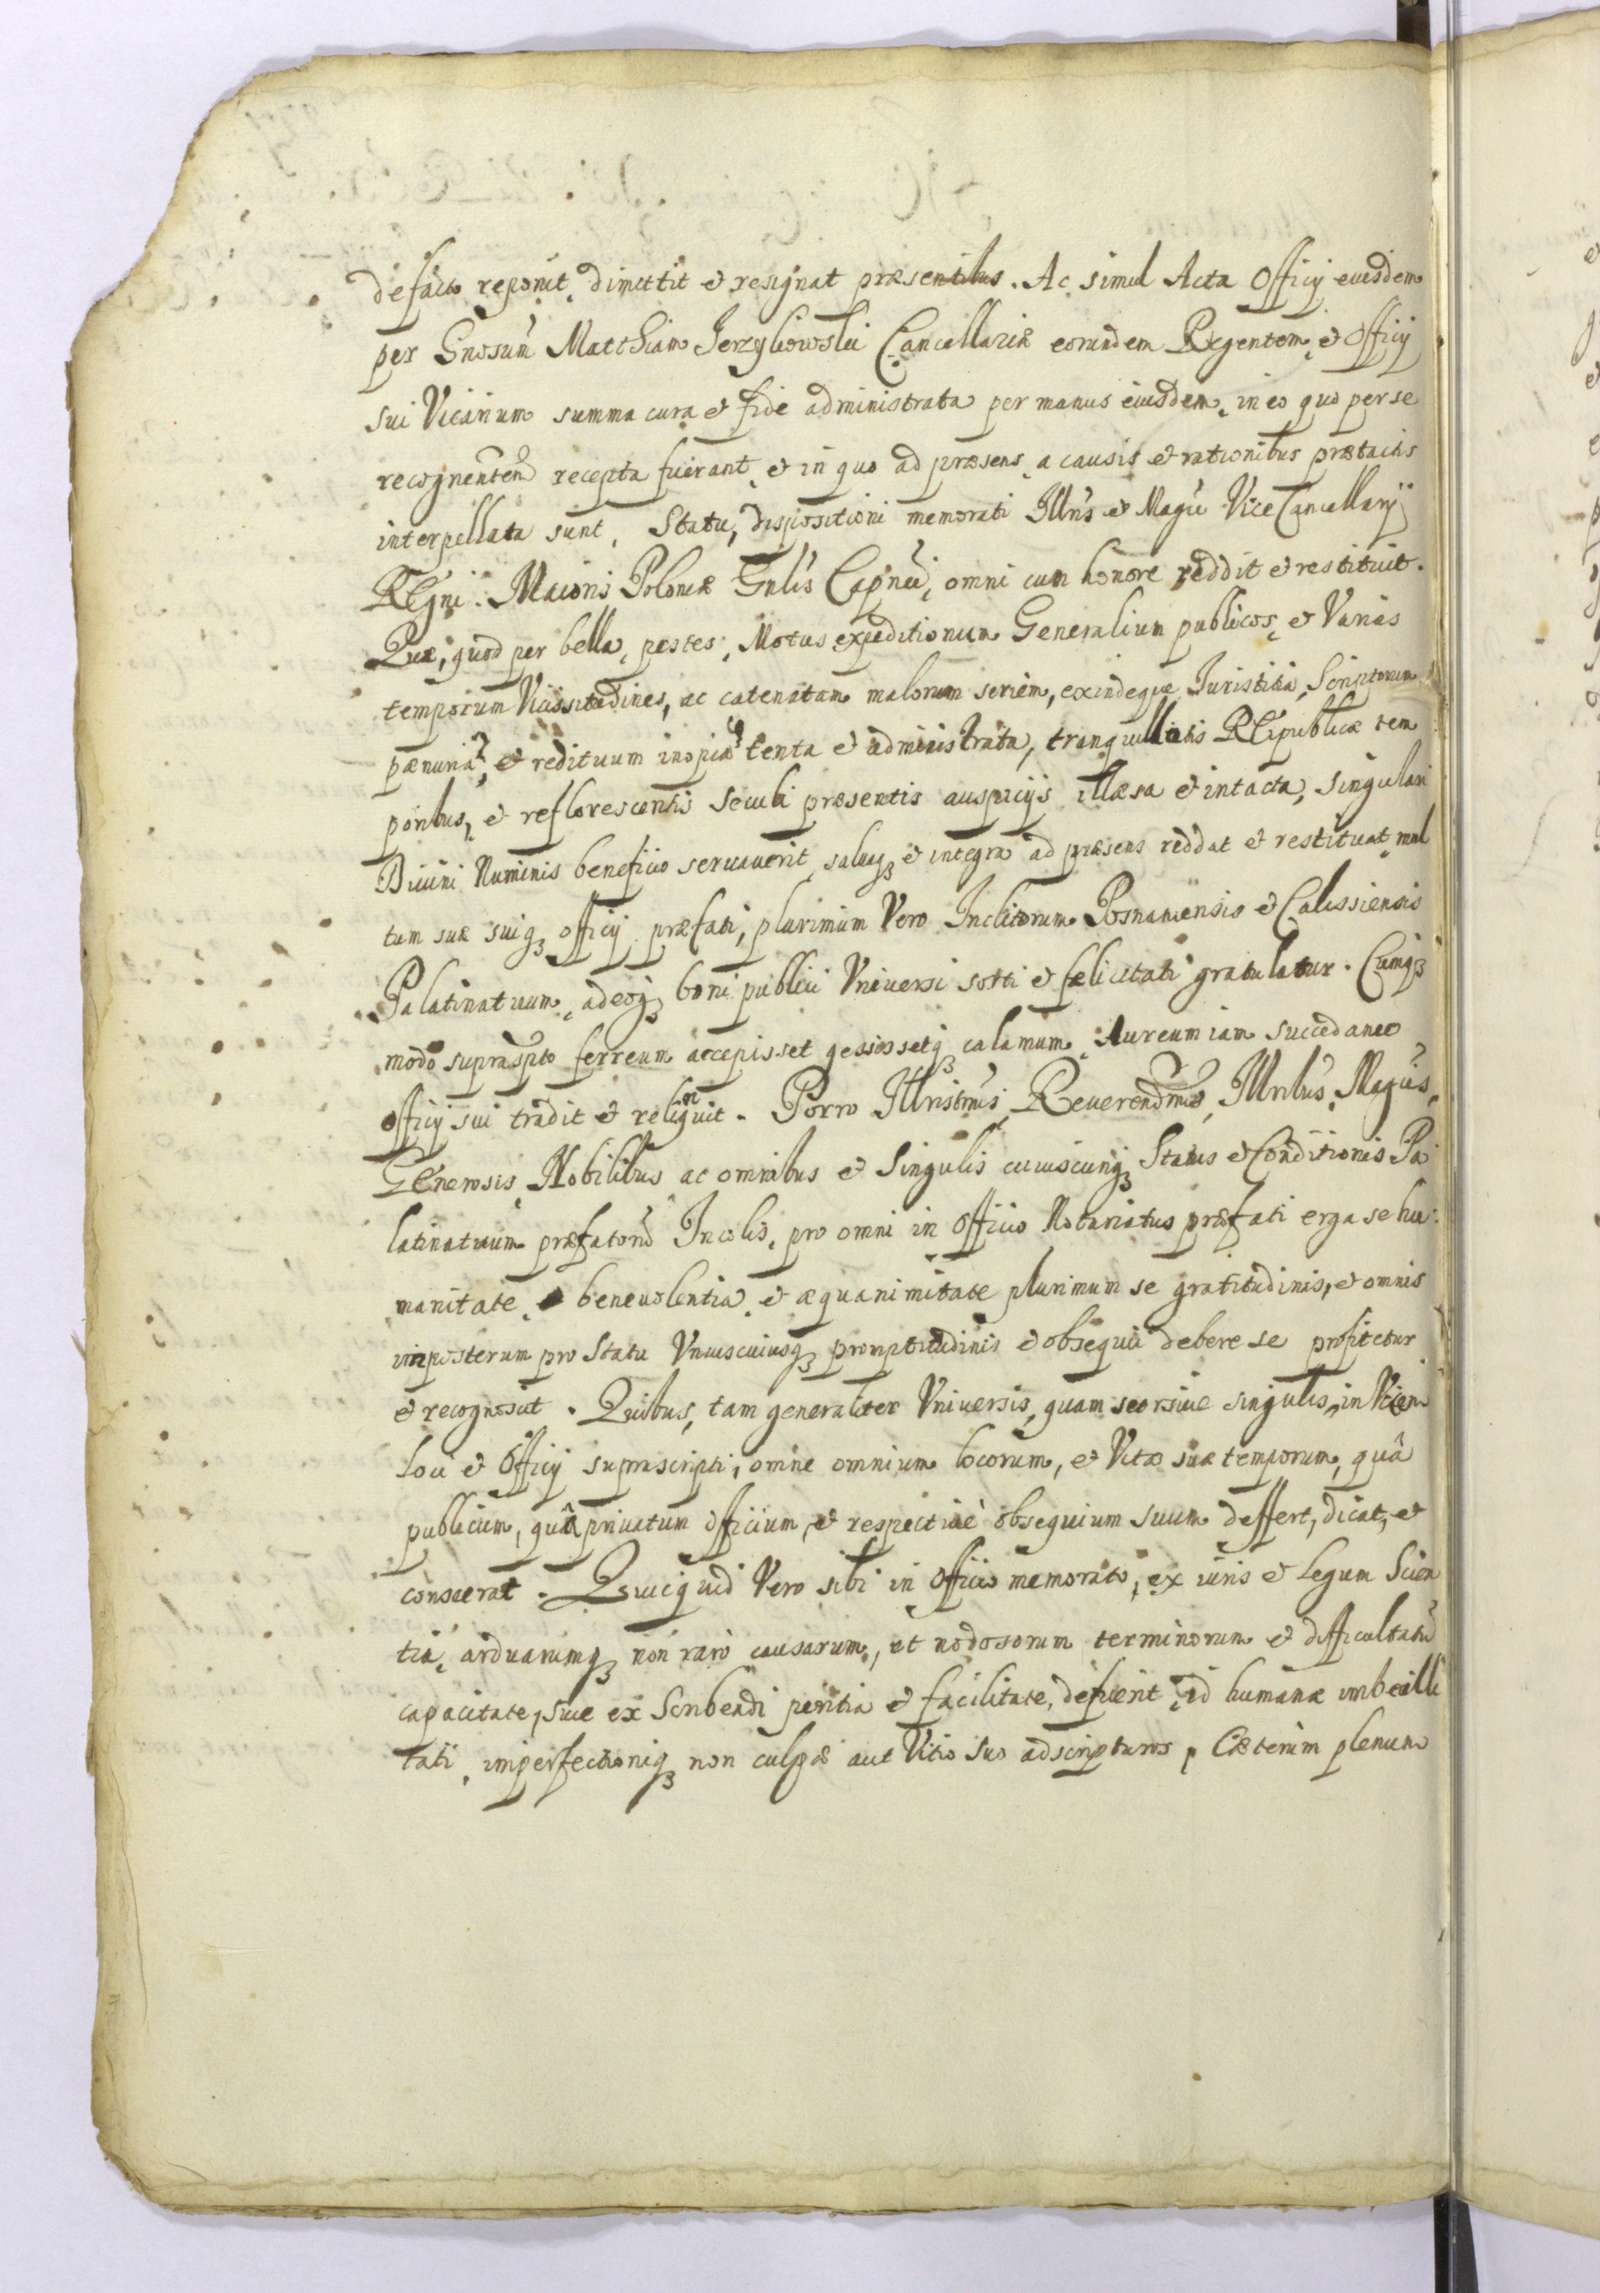 defacto reponit, dimittit et resignat præsentibus. Ac simul Acta Officij eiusdem
per Gnosum Matthiam Jerzykowski Cancellariæ eorundem Regentem, et Officij
sui Vicarium summa cura et fide administrata per manus eiusdem, in eo quo per se
recognentem recepta fuerant, et in quo ad præsens, a causis et rationibus prætactis
interpellata sunt, Statu, dispositioni memorati Illris et Magci Vice Cancellarij
REgni. Maioris Poloniæ Gnlis Capnei, omni cum honore reddit et restituit.
Quæ, quod per bella, pestes, Motus expeditionum Generalium publicos, et Varias
temporum Vicissitudines, ac catenatam malorum seriem, exindeque Iuristitia, Scriptorum
pænuria, et redituum inopia tenta et administrata, tranquillioris REipublicæ tem
poribus, et reflorescentis Seculi præsentis auspicijs illæsa et intacta, singulari
Diuini Numinis beneficio seruauerit, saluaq3 et integra ad præsens reddat et restituat, mul
tum suæ suiq3 officij præfati, plurimum Vero Inclitorum Posnaniensis et Calissiensis
Palatinatuum, adeoq3 boni publici Vniuersi sorti et felicitati gratulatur. Cumq3
modo suprascpto ferreum accepisset gessissetq3 calamum, Aureum iam succedaneo
officij sui tradit et relinquit. Porro Illrissimis, Reuerendmis, Illribus, Magcis,
GEnerosis, Nobilibus ac omnibus et Singulis cuiuscunq3 Status et Conditionis Pa
latinatuum præfatoru Incolis, pro omni in Officio Notariatus præfati erga se hu:
manitate, beneuolentia, et æquanimitate plurimum se gratitudinis, et omnis
imposterum pro Statu Vniuscuiusq3 promptitudinis et obsequii debere se profitetur
et recognoscit. Quibus, tam generaliter Vniuersis, quam seorsiue singulis, in Vicem
loci et Officij suprascripti, omne omnium locorum, et Vitæ suæ temporum, quâ
publicum, quâ priuatum officium, et respectiuè obsequium suum deffert, dicat, et
consecrat. Quicquid Vero sibi in Officio memorato, ex iuris et Legum Scien
tia, arduarumq3 non raro causarum, et nodosorum terminorum et difficultatu
capacitate, siue ex Scribendi peritia et facilitate, defuerit, id humanæ imbecilli
tati, imperfectioniq3 non culpæ aut Vitio suo adscripturos, Cæterum plenum